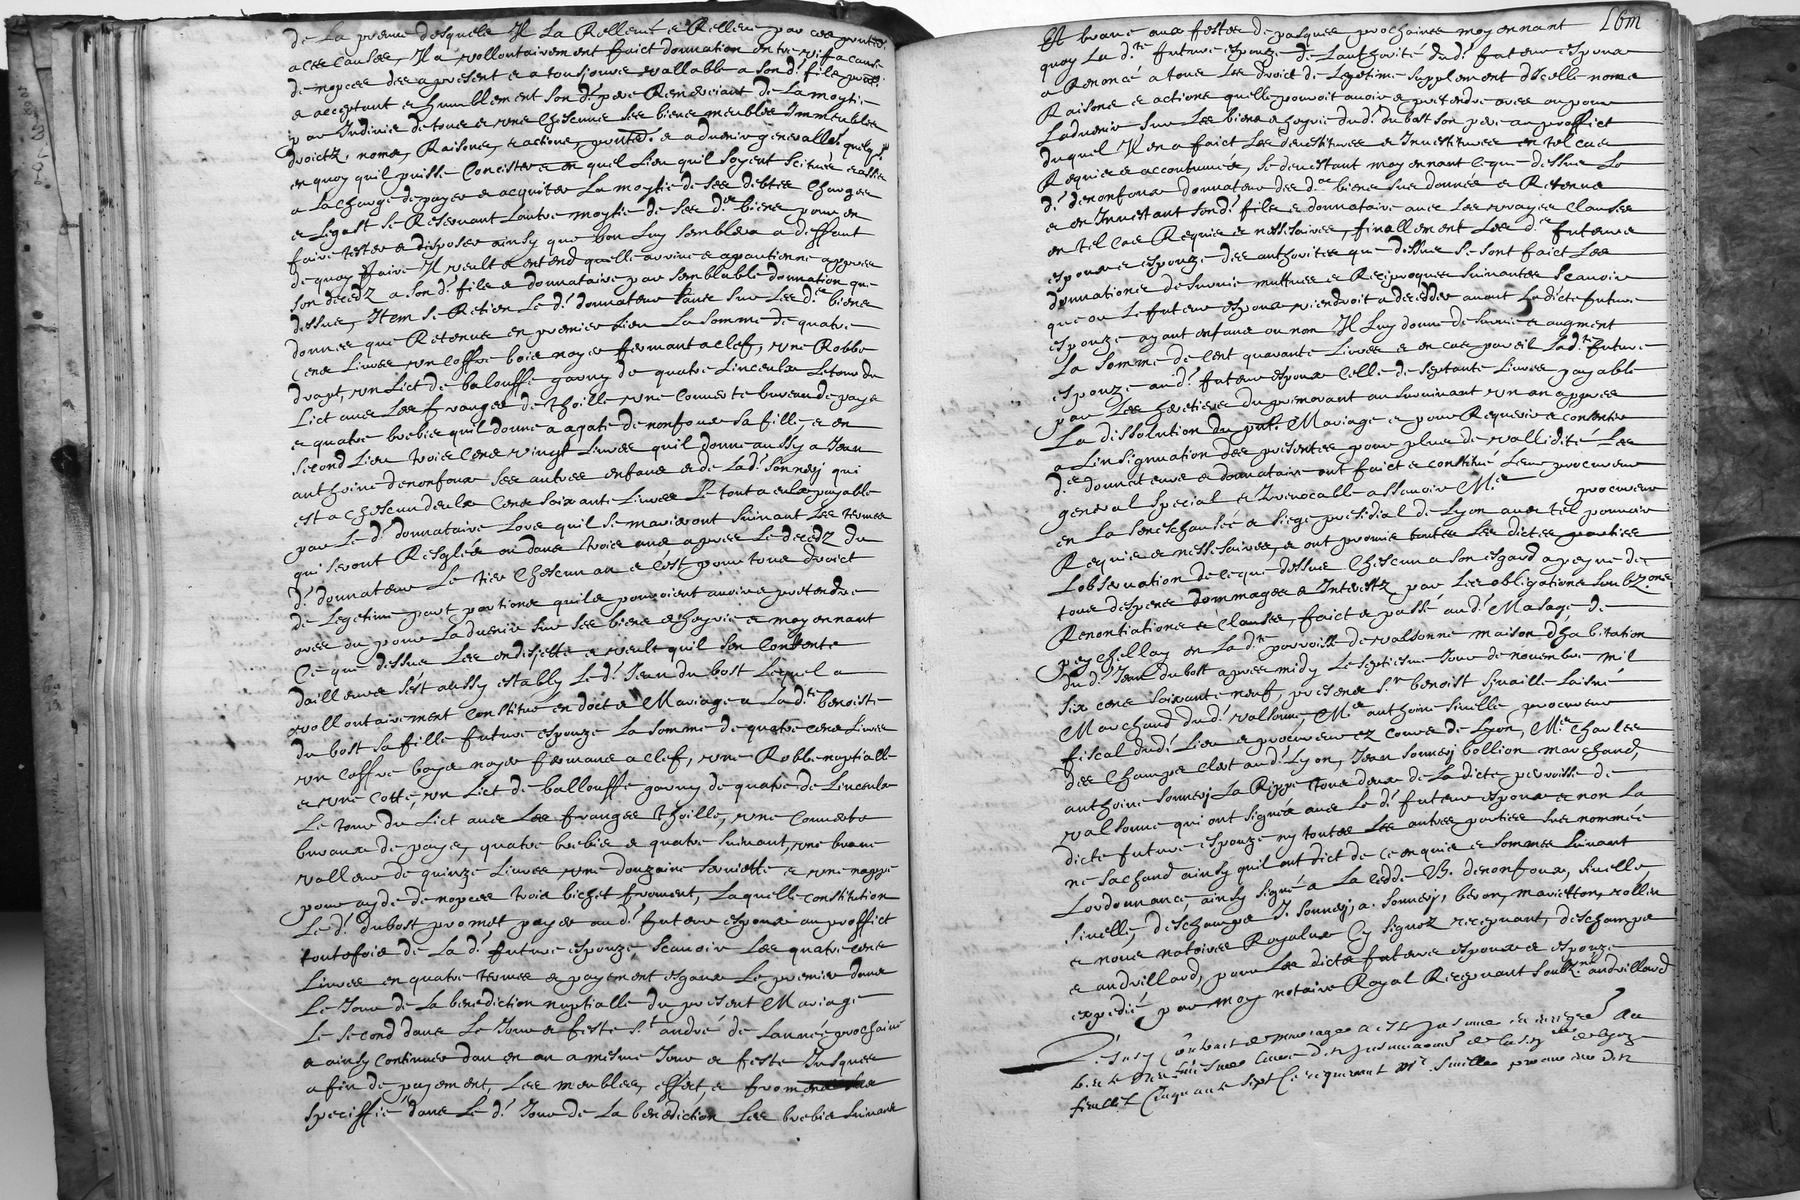 de La preuve desquele Il La Rellevé e Relleve par ces pntes
a ces Causes, Il a vollontairement faict donnation entre vifz a cause
de nopces des a present e a tousjours vallable a son d. filz pnt
e acceptant e humblement son d. pere Remerciant de La moytie
par Indivis de tous e vng Chescungs ses biens meubles Immeubles
droictz, noms, Raisons, e actions, pntes e advenir generalles quelq.
en quoy quil puisse Concister e en quel Lieu quil soyent scitués e assis
a La charge de payer e acquiter La moytie de ses debtes Charges
e Legatz se Reservant Lautre moytie de ses d. biens pour en
faire tester e disposer ainsy que bon Luy semblera a deffaut
de quoy faire Il veult e entend quelle arrive e apartienne appres
son decedz a son d. filz e donnataire par semblable donnation que
dessus, Item se Retien Le d. donnateur sur Les d. biens
donnes que Retenus en premier Lieu La somme de quatre
Cens Livres vn Coffre bois noyer fermant a clef, vne Robbe
drapt, vn Lict de balouffe garny de quatre Linceulx Letour du
Lict avec Les franges de thoille vne Couverte bureau de paye
e quatre brebis quil donne a agate denonfoux sa fille, e en
second Lieu trois Cens vingt Livres quil donne aussy a Jean
anthoine denonfoux ses autres enfans e de La d. Sonnerj qui
est a Chescun deulx Cens soixante Livres Le tout a eulx payable
par Le d. donnataire Lors quil se marieront suivant Les termes
qui seront Resglés ou dans trois ans appres Le decedz du
d. donnateur Le tier Chescun an e c'est pour tous droict
de Legetime part portions quils pourroient avoir e pretendre
ores ou pour Ladvenir sur ses biens e hoyrie e moyennant
Ce que dessus Les en desjette e veult quil son Contente
dailleurs s'est aussy estably Le d. Jean du bost Lequel a
vollontairement Constitué en doct e Mariage a La d.te benoiste
du bost sa fille future espouze La somme de quatre Cens Livres
vn Coffre boys noyer fermans a clef, vne Robbe nuptialle
e vne cotte, vn Lict de ballouffe garny de quatre de Linceulx
Le tour du Lict avec Les franges thoille, vne Couverte
bureaux de paye, quatre brebis e quatre suivant, vne brave
valleur de quinze Livres vne douzaine serviette e vne nappe
pour ayde de nopces trois bichet froment, Laquelle constitution
Le d. du bost promet payer au d. futur espoux au proffict
toutefois de La d. future espouze, scavoir Les quatre Cens
Livres en quatre termes e payement esgaux Le premier dans
Le Jour de La benediction nuptialle du present Mariage
Le second dans Le Jour e feste St andré de Lannée prochaine
e ainsy continuer dan en an a mesme Jour e feste Jusques
a fin de payement, Les meubles, effect, e froment
speciffié dans Le d. Jour de La benediction Les brebis suivans
Lbm
Et brave aux festes de pasques prochaines moyennant
quoy La d.te future espouze de Lauthorité du d. futur espoux
a Renoncé a tous Les droict de Legetime supplement d'icelle noms
Raisons e actions quelle pouvoit avoir e pretendre ores ou pour
Ladvenir sur Les biens e hoyrie du d. du bost son pere au proffict
duquel Il en a faict Les devestitures e Investitures en tel cas
Requis e accoutumés, se devestant moyennant ceque dessus Le
d. denonfoux donnateur des d. biens sus donnés e Retenus
e en Investant son d. filz e donnataire avec Les vrayes Clauses
en tel cas Requis e nessesaires, finallement Les d. futeurs
espoux e espouze des authorites que dessus se sont faict Les
donnations de survie mutues e Reciproques suivantes scavoir
que ou Le futeur espoux viendroit a decedder avant La dicte future
espouze ayant enfans ou non Il Luy donne de survie e augment
La somme de Cent quarante Livres e en cas pareil La d.te future
espouze au d. futeur espoux Celle de septante Livres payable
par Les heretiers du premorant au survivant vn an appres
La dissolution du pnt. Mariage e pour Requerir e consentir
a Linsignuation des presentes pour plus de vallidité Les
d. donnateurs e donnataire ont faict e constitué Leur procureur
general special e Irrevocable assavoir Me procureur
en La seneschaussée e siege presidial de Lyon avec tel pouvoir
Requis e nessesaires, e ont promis toutes Les dictes parties
Lobservation de ce que dessus Chescun a son esgard a peyne de
tous despens dommages e Interestz par Les obligations soubz.ons
Renontiations e Clauses, faict e passé au d. Masage de
peychellay en La d.te parroisse de valsonne maison dhabitation
du d. Jean du bost appres midy Le septiesme Jour de novembre mil
six cens soixante neuf, presens Sr benoist sivaille Laisné
Marchand du d. valsonne, Me anthoine sivelle, procureur
fiscal du d. Lieu e procureur ez Cours de Lyon, Me Charles
des Champs Clert au d. Lyon, Jean Sonnerj bollion marchand,
anthoine Sonnerj La Rippe tous deux de La dicte parroisse de
valsonne qui ont signés avec Le d. futeur espoux e non La
dicte future espouze ny toutes Les autres parties sus nommés
ne sachans ainsy quil ont dict de ce enquis e sommés suivant
Lordonnance, ainsy signé a La cedde B. denonfoux, sivelle,
sivelle, deschamps J. Sonnerj, a. Sonnerj, beron, marietton, rollin
e nous notaires Royaulx Cy signez recepvant, deschamps
e andrillard, pour Les dicts futeurs espoux e espouze
expedié par moy notaire Royal Recepvant soubz.né andrillard